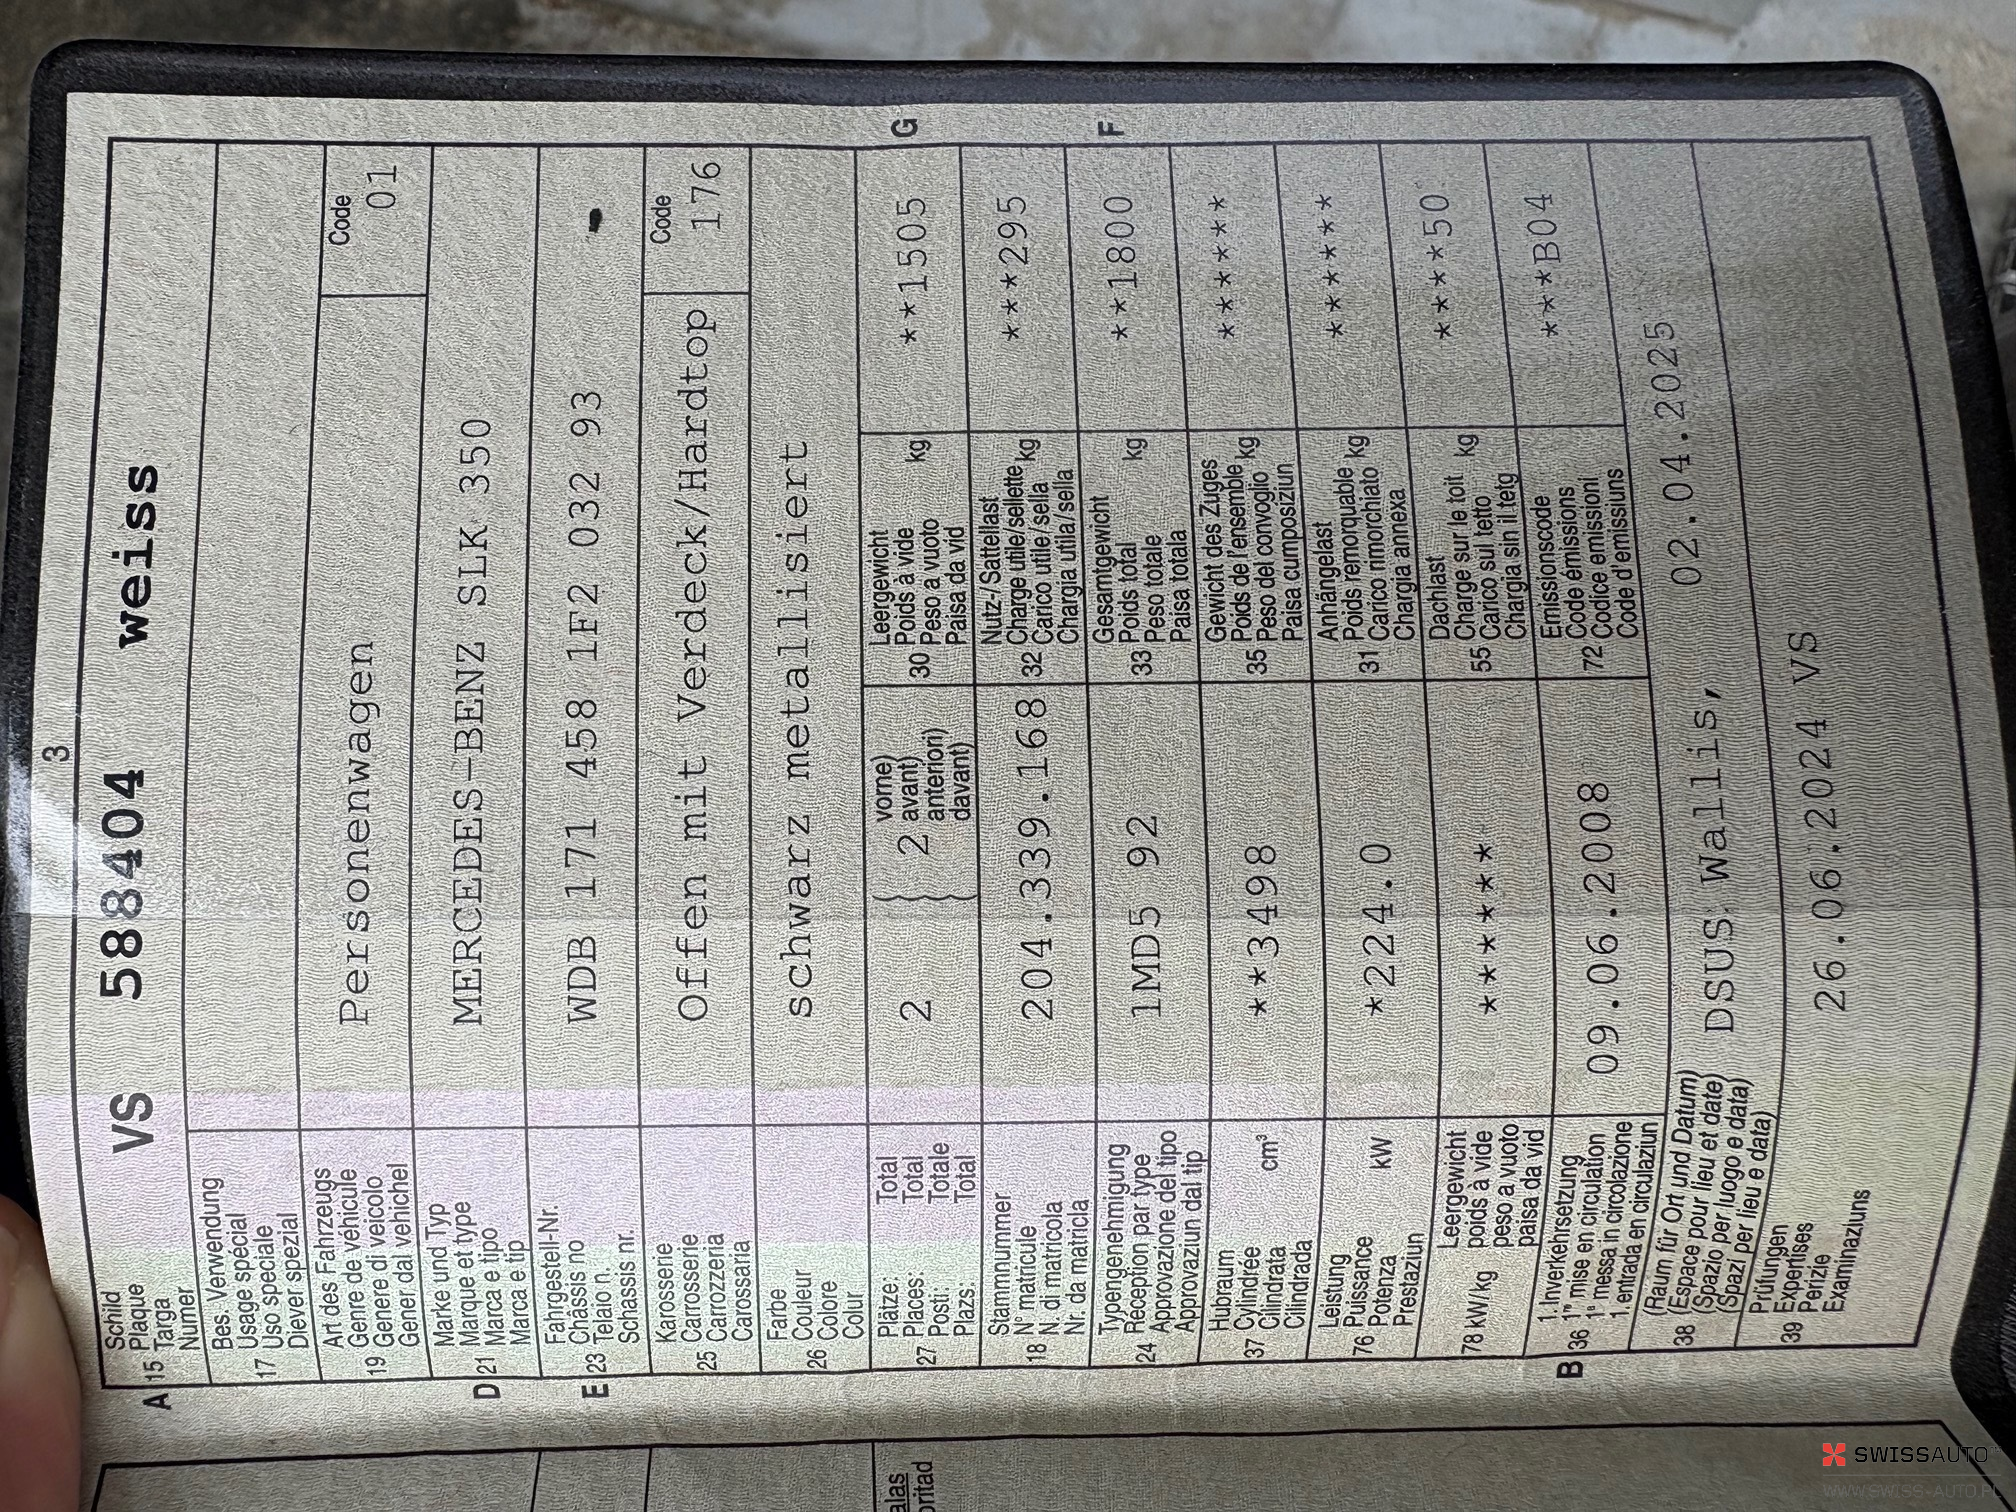 3
A 15 Schild Plaque Targa Numer VS 588404 weiss
17 Bes. Verwendung Usage spécial Uso speciale Diever spezial
19 Art des Fahrzeugs Genre de véhicule Genere di veicolo Gener dal vehichel Personenwagen Code 01
D 21 Marke und Typ Marque et type Marca e tipo Marca e tip MERCEDES-BENZ SLK 350
E 23 Fahrgestell-Nr. Châssis no Telaio n. Schassis nr. WDB 171 458 1F2 032 93 -
25 Karosserie Carrosserie Carrozzeria Carossaria Offen mit Verdeck/Hardtop Code 176
26 Farbe Couleur Colore Colur schwarz metallisiert
27 Plätze: Total Places: Total Posti: Totale Plazs: Total 2 { 2 vorne) avant) anteriori) davant)
30 Leergewicht Poids à vide Peso a vuoto Paisa da vid kg **1505 G
18 Stammnummer N° matricule N. di matricola Nr. da matricla 204.339.168
32 Nutz-/Sattellast Charge utile/sellette Carico utile/sella Chargia utila/sella kg ***295
24 Typengenehmigung Réception par type Approvazione del tipo Approvaziun dal tip 1MD5 92
33 Gesamtgewicht Poids total Peso totale Paisa totala kg **1800 F
37 Hubraum Cylindrée Cilindrata Cilindrada cm³ **3498
35 Gewicht des Zuges Poids de l'ensemble Peso del convoglio Paisa cumposiziun kg ******
76 Leistung Puissance Potenza Prestaziun kW *224.0
31 Anhängelast Poids remorquable Carico rimorchiato Chargia annexa kg ******
78 kW/kg Leergewicht poids à vide peso a vuoto paisa da vid *******
55 Dachlast Charge sur le toit Carico sul tetto Chargia sin il tetg kg ****50
B 36 1. Inverkehrsetzung 1re mise en circulation 1a messa in circolazione 1. entrada en circulaziun 09.06.2008
72 Emissionscode Code émissions Codice emissioni Code d'emissiuns ***B04
38 (Raum für Ort und Datum) (Espace pour lieu et date) (Spazio per luogo e data) (Spazi per lieu e data) DSUS Wallis, 02.04.2025
39 Prüfungen Expertises Perizie Examinaziuns 26.06.2024 VS
alas
oritad
SWISSAUTO
WWW.SWISS-AUTO.PL